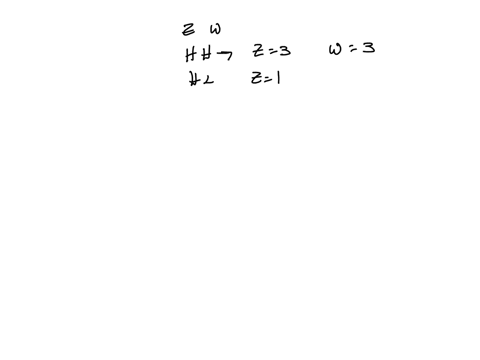 Z W
HH → Z=3 W=3
HL Z=1